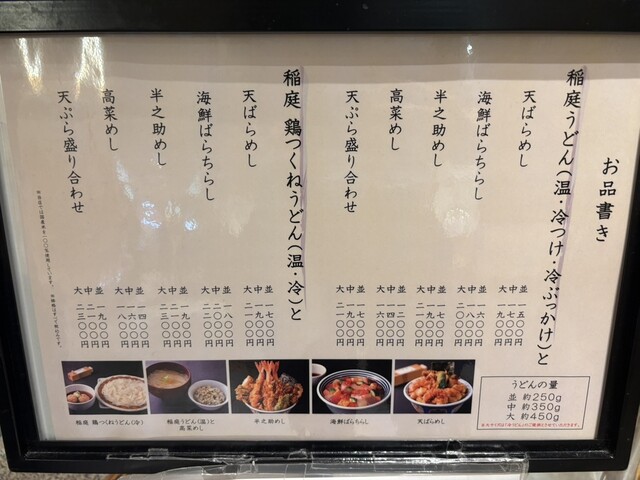 お品書き
稲庭うどん(温・冷つけ・冷ぶっかけ)と
天ばらめし
並 一五〇〇円
中 一七〇〇円
大 一九〇〇円
海鮮ばらちらし
並 一六〇〇円
中 一八〇〇円
大 二〇〇〇円
半之助めし
並 一七〇〇円
中 一九〇〇円
大 二一〇〇円
高菜めし
並 一二〇〇円
中 一四〇〇円
大 一六〇〇円
天ぷら盛り合わせ
並 一七〇〇円
中 一九〇〇円
大 二一〇〇円
稲庭 鶏つくねうどん(温・冷)と
天ばらめし
並 一七〇〇円
中 一九〇〇円
大 二一〇〇円
海鮮ばらちらし
並 一八〇〇円
中 二〇〇〇円
大 二二〇〇円
半之助めし
並 一九〇〇円
中 二一〇〇円
大 二三〇〇円
高菜めし
並 一四〇〇円
中 一六〇〇円
大 一八〇〇円
天ぷら盛り合わせ
並 一九〇〇円
中 二一〇〇円
大 二三〇〇円
※当店では国産米を一〇〇%使用しています。 ※価格はすべて税込です。
うどんの量
並 約250g
中 約350g
大 約450g
稲庭 鶏つくねうどん(冷)
稲庭うどん(温)と
高菜めし
半之助めし
海鮮ばらちらし
天ばらめし